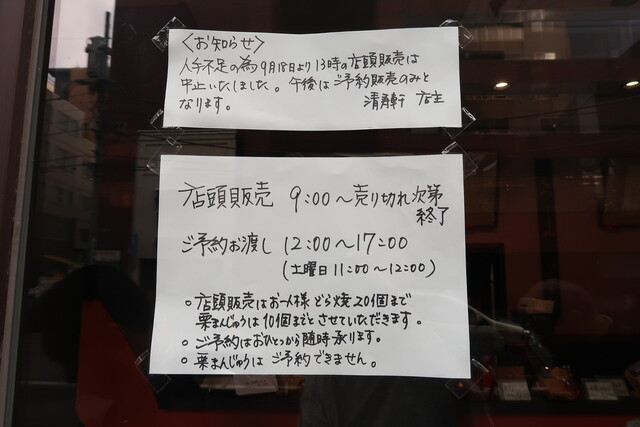 〈お知らせ〉
人手不足の為9月18日より13時の店頭販売は
中止いたしました。午後はご予約販売のみと
なります。 清寿軒 店主
店頭販売 9:00～売り切れ次第
終了
ご予約お渡し 12:00～17:00
(土曜日11:00～12:00)
○店頭販売はお一人様どら焼20個まで
栗まんじゅうは10個までとさせていただきます。
○ご予約はおひとつから随時承ります。
○栗まんじゅうはご予約できません。